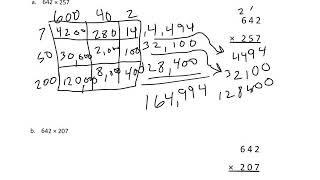 a. 642 × 257
600 40 2
7 4200 280 14
50 30,000 2,000 100
200 120,000 8,000 400
14,494
32,100
128,400
164,994
2 1
642
× 257
4494
32100
128400
b. 642 × 207
642
× 207